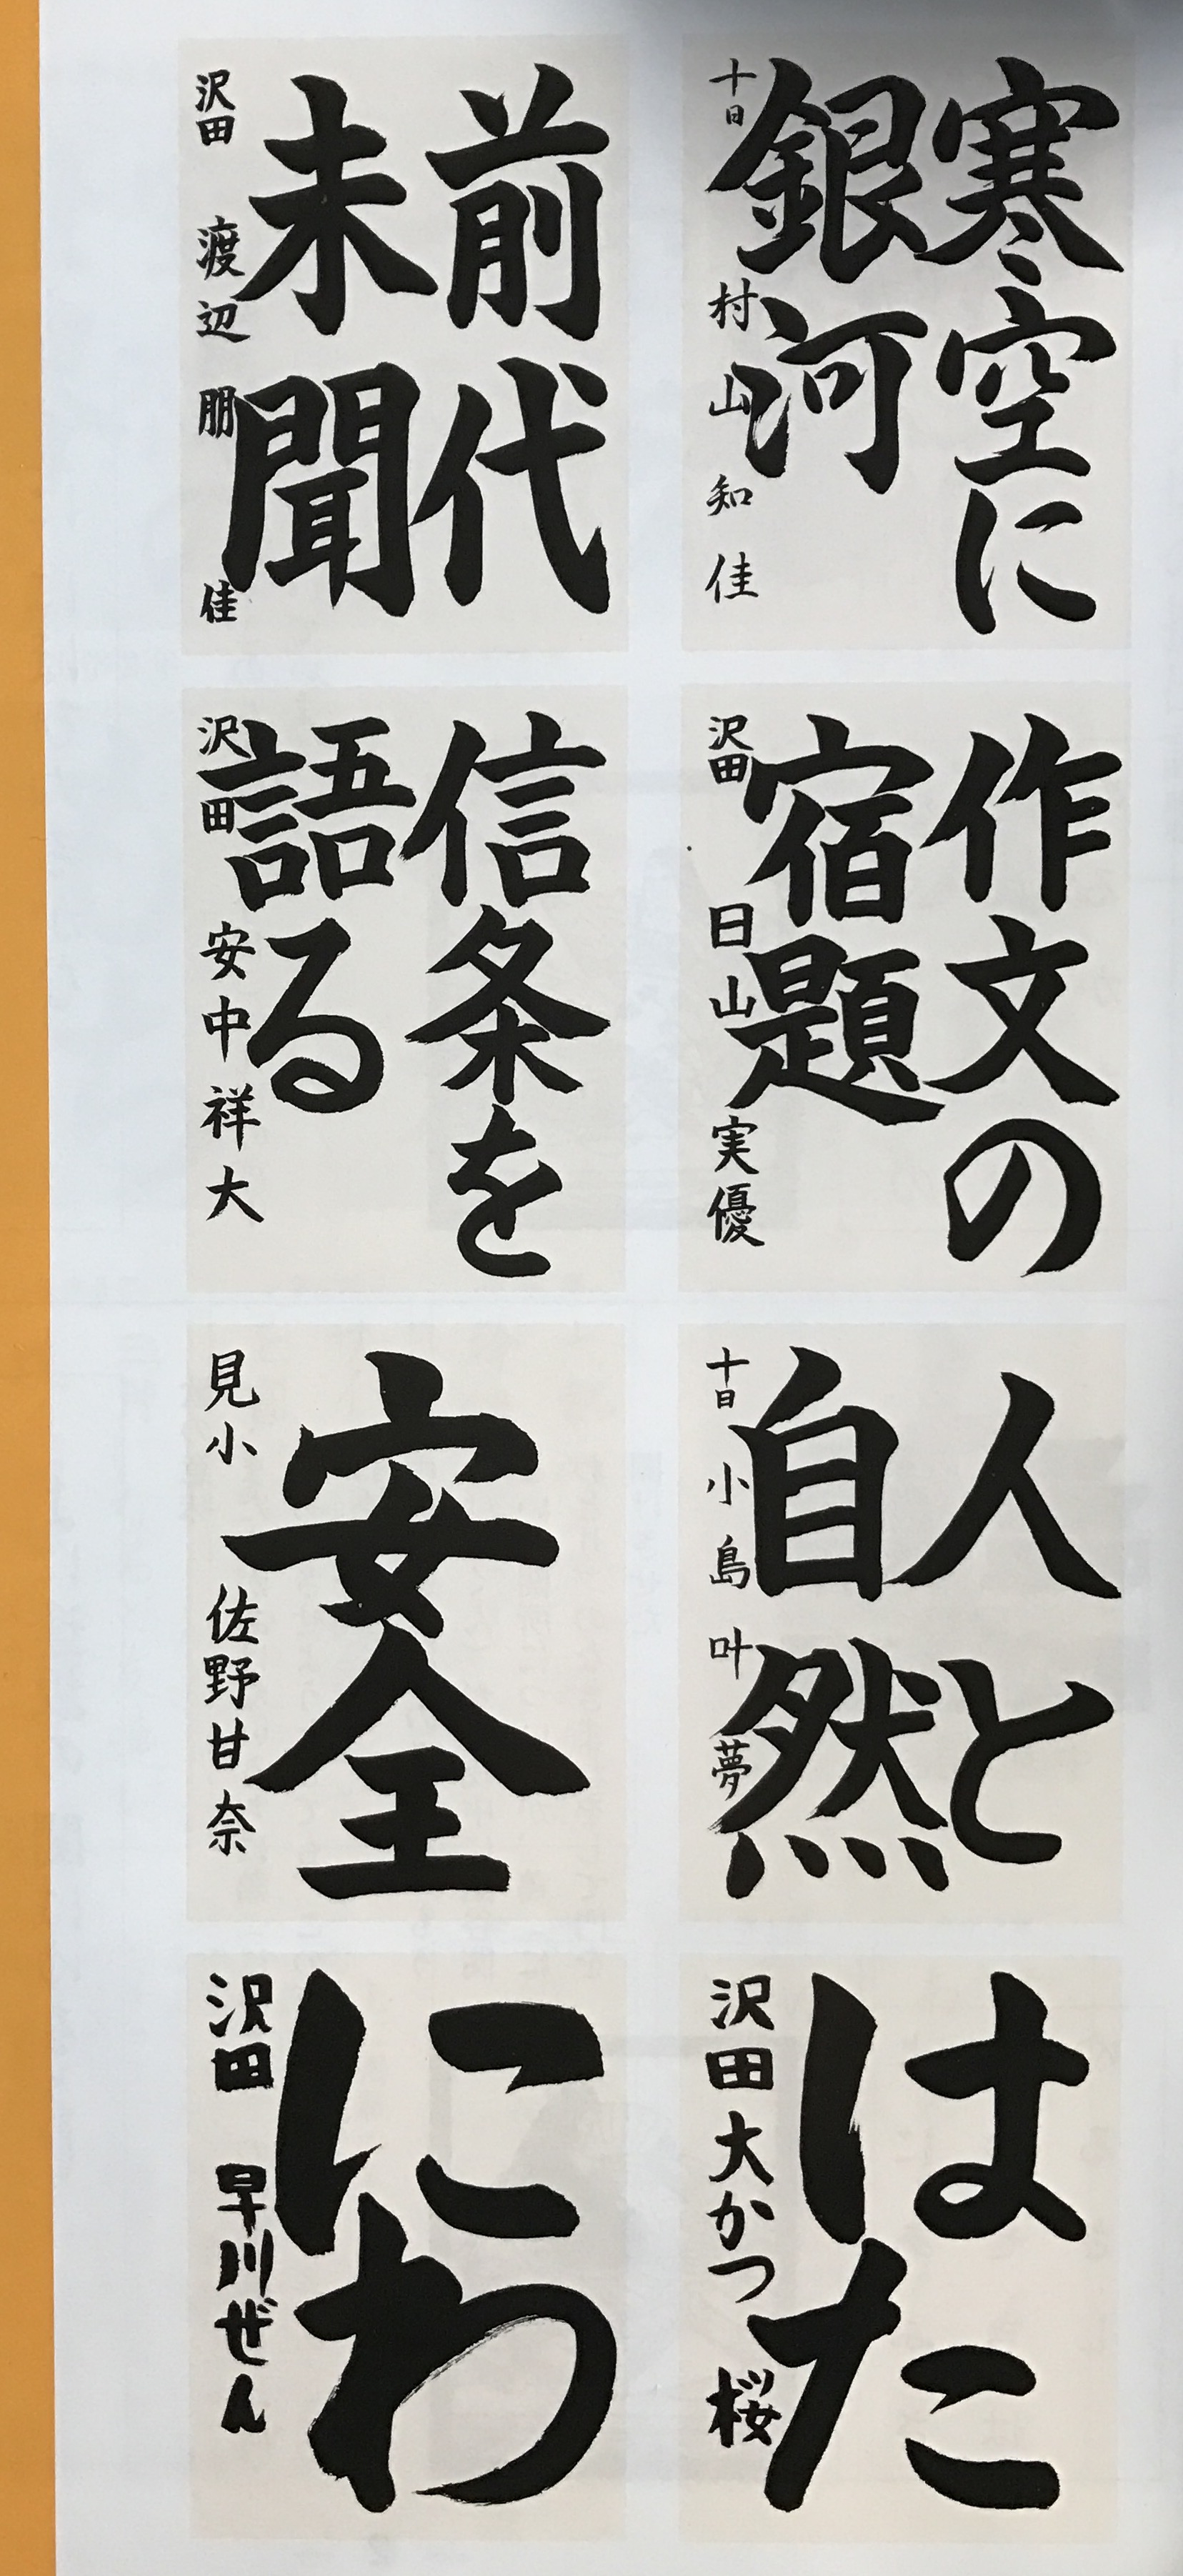 寒空に
銀河
十日 村山知佳
前代
未聞
沢田 渡辺朋佳
作文の
宿題
沢田 日山実優
信条を
語る
沢田 安中祥大
人と
自然
十日 小島叶夢
安全
見小 佐野甘奈
はた
沢田 大かつ 桜
にわ
沢田 早川ぜん